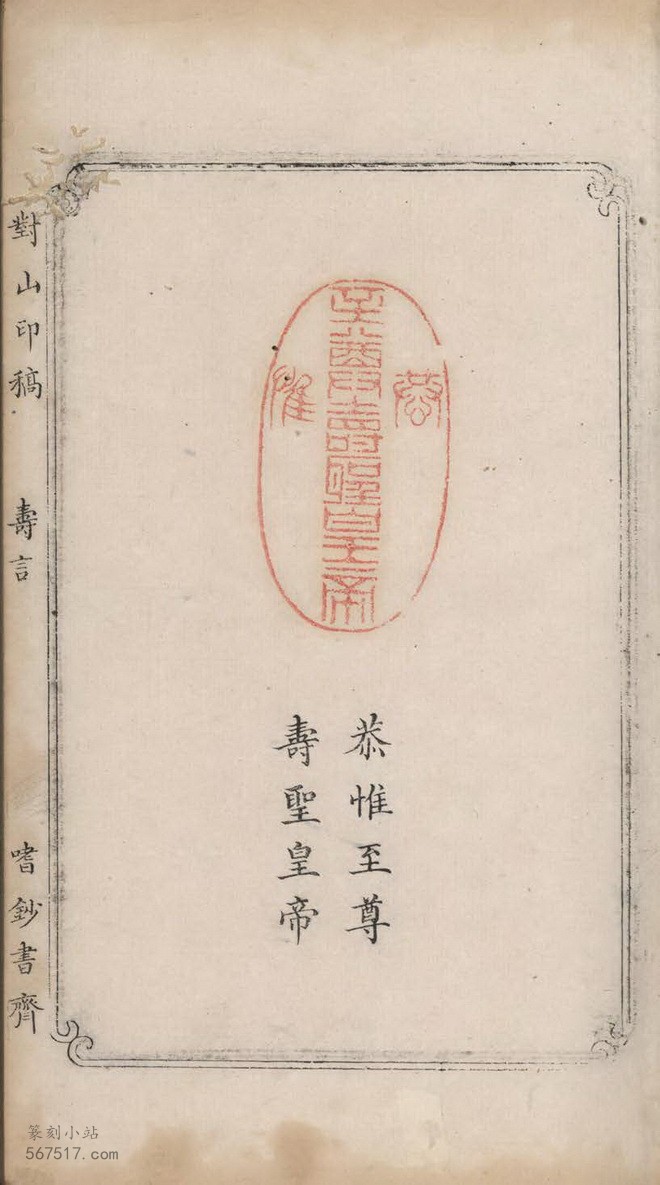 恭惟
至尊壽聖皇帝
恭惟至尊
壽聖皇帝
對山印稿 壽言 嗜鈔書齊
篆刻小站
567517.com